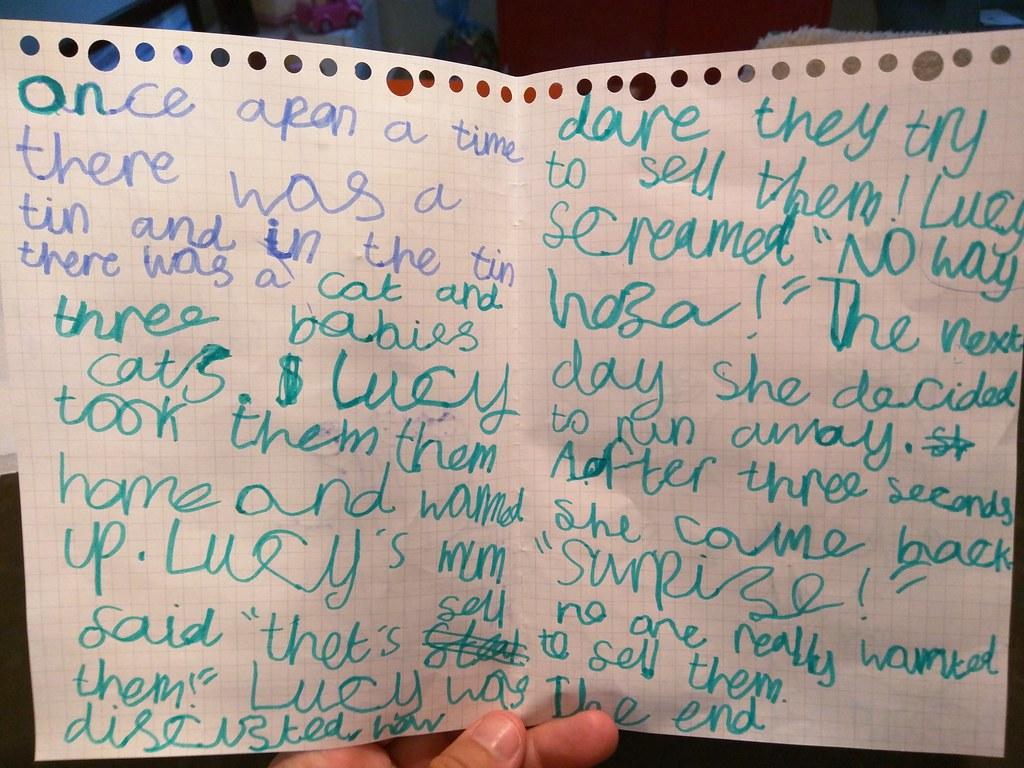 once apon a time
there was a
tin and in the tin
there was a cat and
three babies
cats. Lucy
took them them
home and warmed
up. Lucy's mum
said "thet's sell
them!" Lucy was
discusted, how
dare they try
to sell them! Lucy
screamed "NO way
hoza!" The next
day she decided
to run away.
After three seconds
she came back
"Surpize!"
no one really wannted
to sell them.
The end